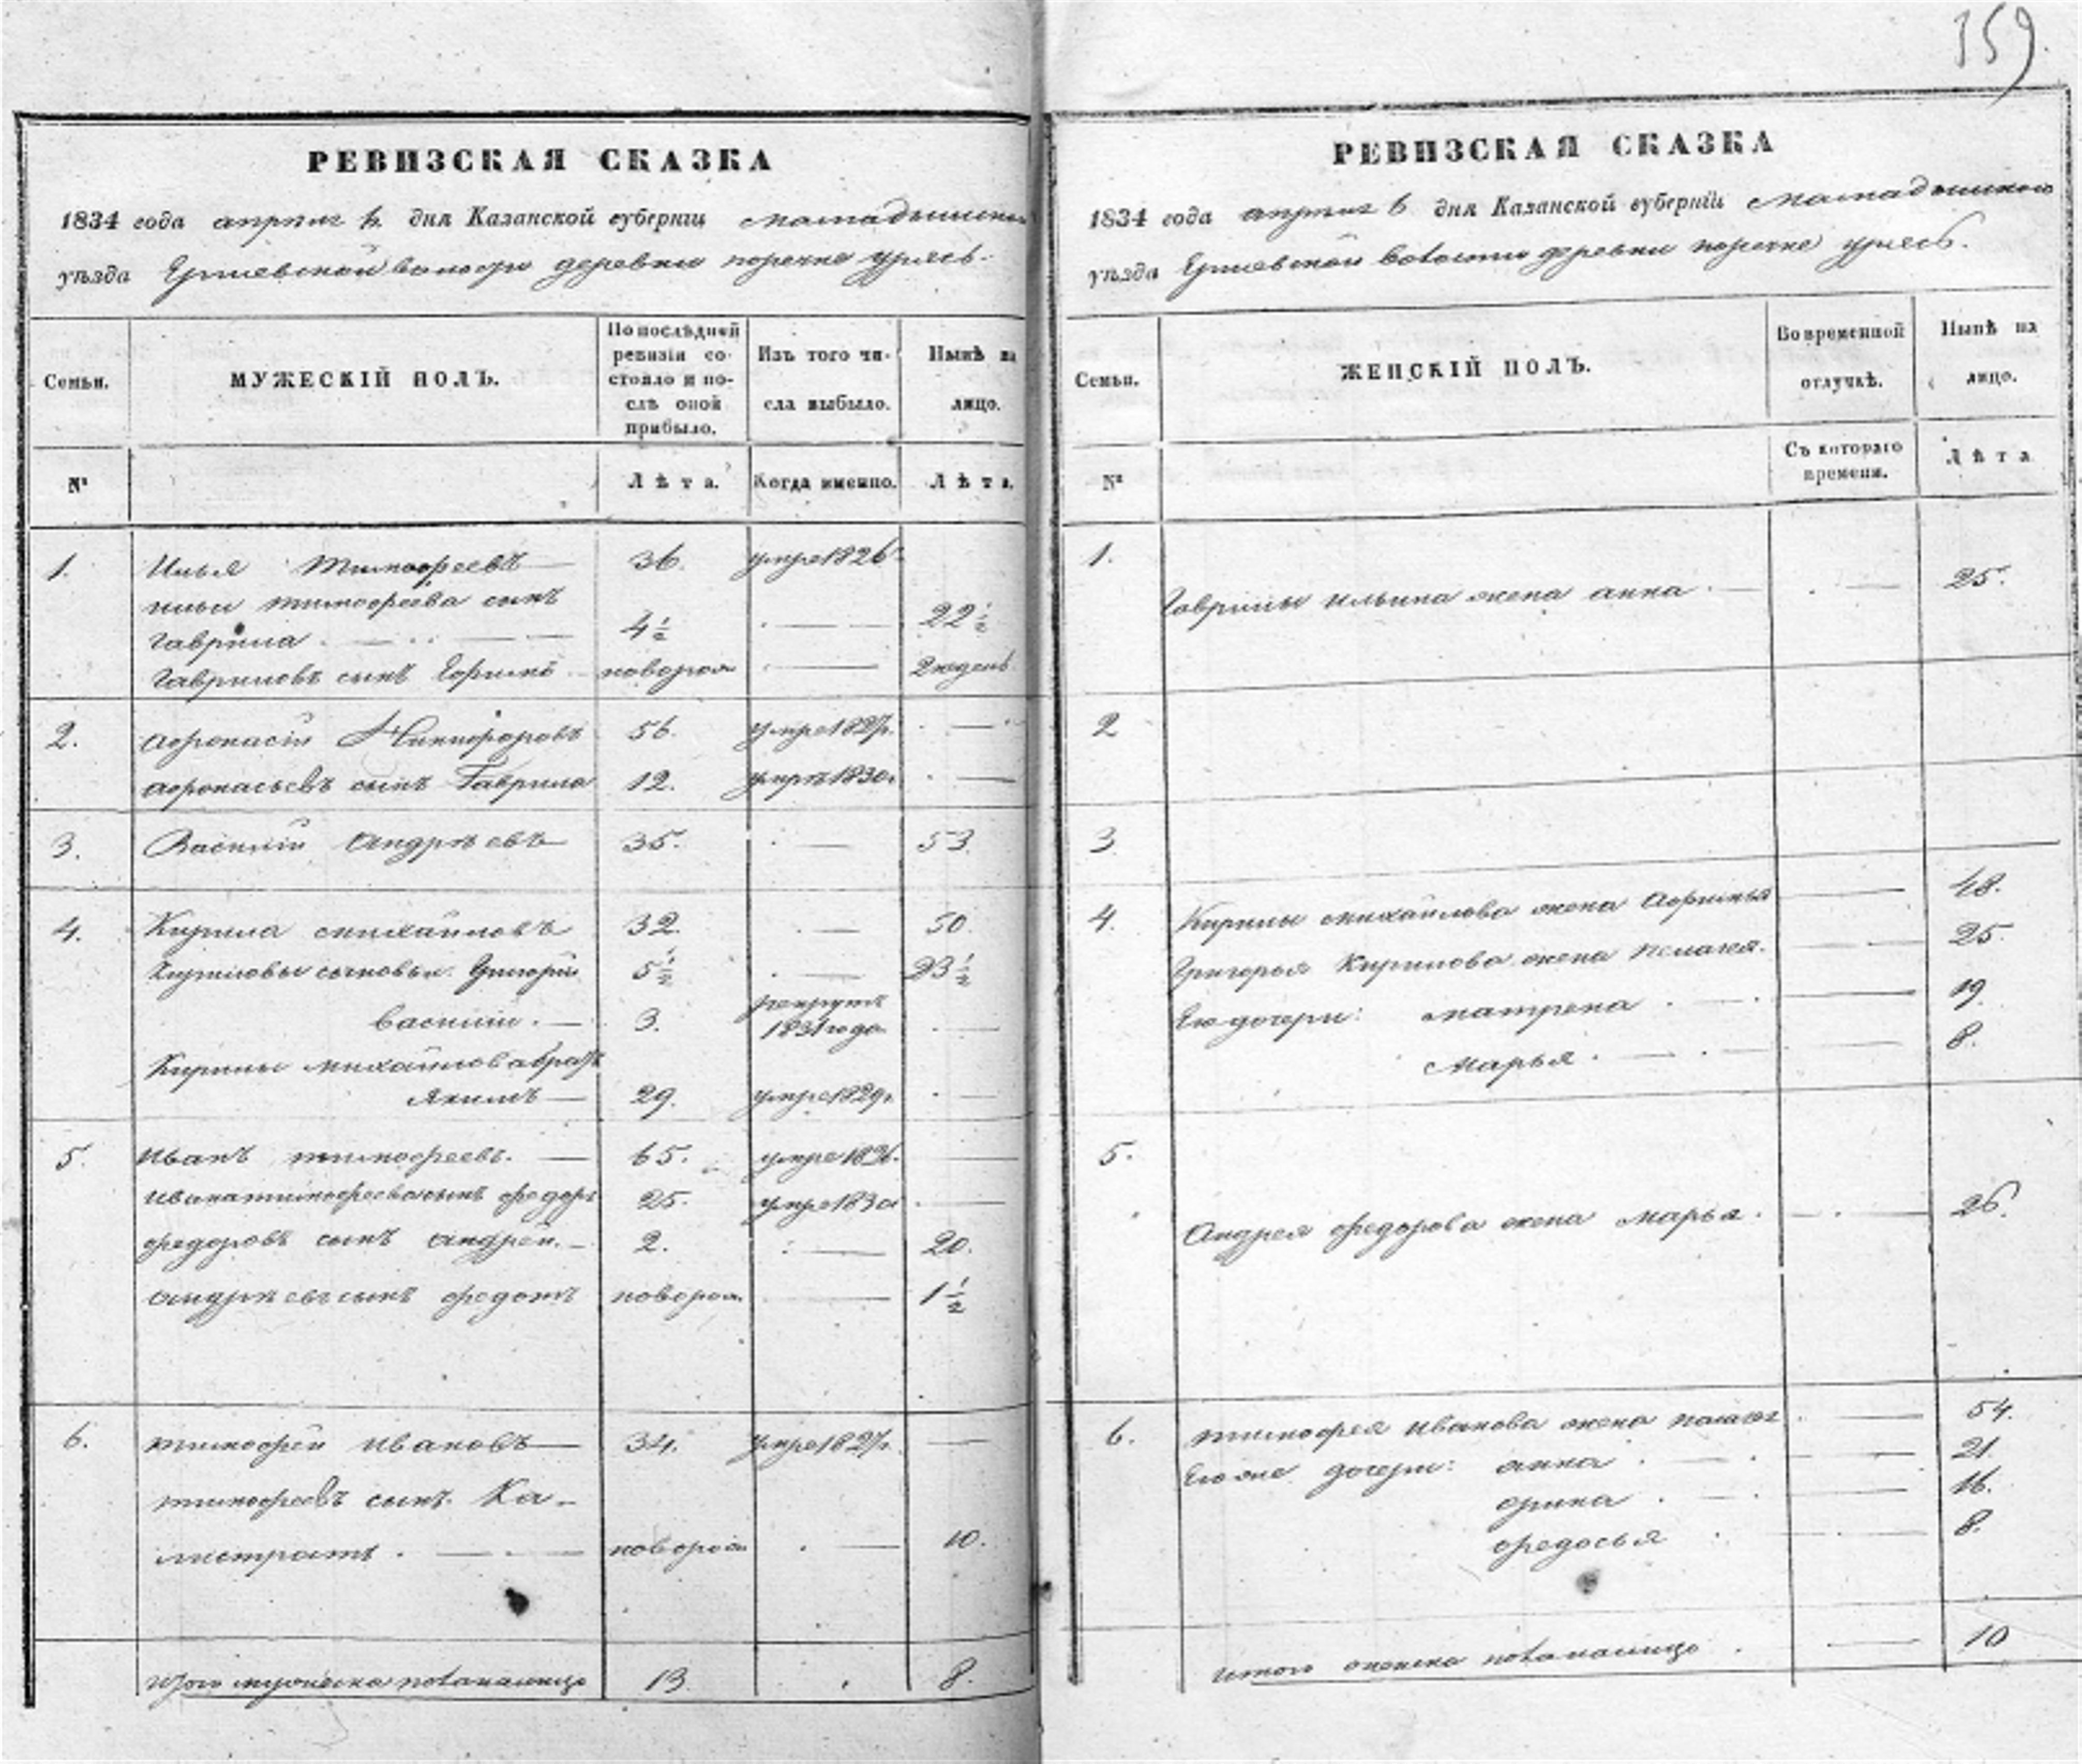 359
РЕВИЗСКАЯ СКАЗКА
1834 года апреля 6 дня Казанской губерніи мамадышскаго
уѣзда деревни поречке урясь.
Семьи.
МУЖЕСКІЙ ПОЛЪ.
По послѣдней
ревизіи со-
стояло и по-
слѣ оной
прибыло.
Изъ того чи-
сла выбыло.
Нынѣ на
лицо.
№
Лѣта.
Когда именно.
Лѣта.
1. Илья тимофеевъ 36. умре 1826
ильи тимофеева сынъ
гаврила 4½ 22½
гавриловъ сынъ новорож 2 недель
2. афонасіи Никифоровъ 56. умре 1827.
афонасьевъ сынъ Гаврило 12. умре 1830.
3. Василіи андрѣевъ 35. 53.
4. Кирила михайловъ 32. 50.
Кириловы сыновьи: Григории 5½ 23½
василіи. 3. рекрутъ
1831 года
Кирилы михайлова братъ
якимъ 29. умре 1829.
5. иванъ тимофеевъ. 65. умре
ивана тимофеева сынъ федоръ 25. умре
федоровъ сынъ андрей. 2. 20.
андрѣевъ сынъ федотъ новорож. 1½
6. тимофеи ивановъ 34. умре 1827.
тимофеевъ сынъ. Ка-
листратъ. новорож 10.
итого мужеска пола налицо 13. 8.
РЕВИЗСКАЯ СКАЗКА
1834 года апреля 6 дня Казанской губерніи мамадышскаго
уѣзда волости деревни поречке урясь.
Семьи.
ЖЕНСКІЙ ПОЛЪ.
Во временной
отлучкѣ.
Нынѣ на
лицо.
№
Съ котораго
времени.
Лѣта
1.
Гаврилы ильина жена анна 25.
2
3
4. Кирилы михайлова жена афимья 48.
Григорья Кирилова жена пелагея. 25.
Его дочери: матрена 19.
Марья. 8.
5.
Андрея федорова жена марья. 26.
6. тимофея иванова жена 54.
Его же дочери: анна 21.
орина 16.
федосья 8.
итого женска пола налицо 10